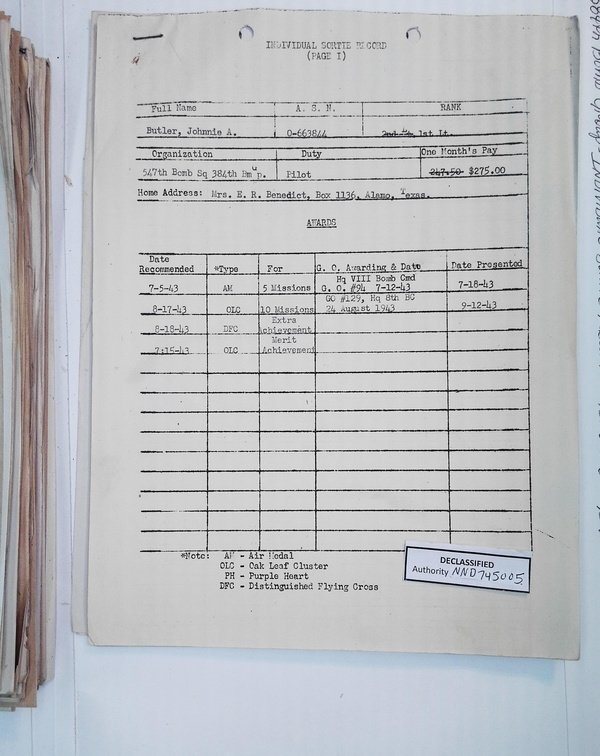 INDIVIDUAL SORTIE RECORD
(PAGE I)
Full Name A. S. N. RANK
Butler, Johnnie A. O-663844 1st Lt.
Organization Duty One Month's Pay
547th Bomb Sq 384th Bm p. Pilot 247.50 $275.00
Home Address: Mrs. E. R. Benedict, Box 1136, Alamo, Texas.
AWARDS
Date Recommended *Type For G. O. Awarding & Date Date Presented
7-5-43 AM 5 Missions Hq VIII Bomb Cmd G. O. #94 7-12-43 7-18-43
8-17-43 OLC 10 Missions GO #129, Hq 8th BC 24 August 1943 9-12-43
8-18-43 DFC Extra Achievement
7-15-43 OLC Merit Achievement
*Note: AM - Air Medal
OLC - Oak Leaf Cluster
PH - Purple Heart
DFC - Distinguished Flying Cross
DECLASSIFIED
Authority NND745005